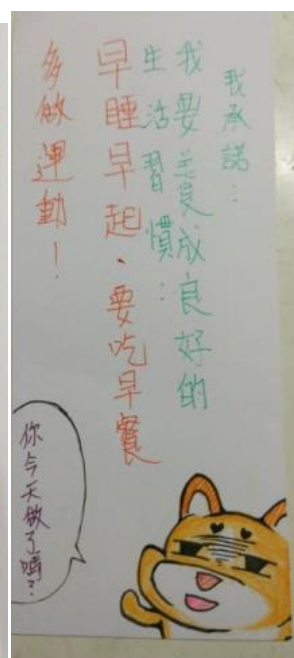 我承諾：
我要養成良好的
生活習慣：
早睡早起、要吃早餐
多做運動！
你今天做了嗎？